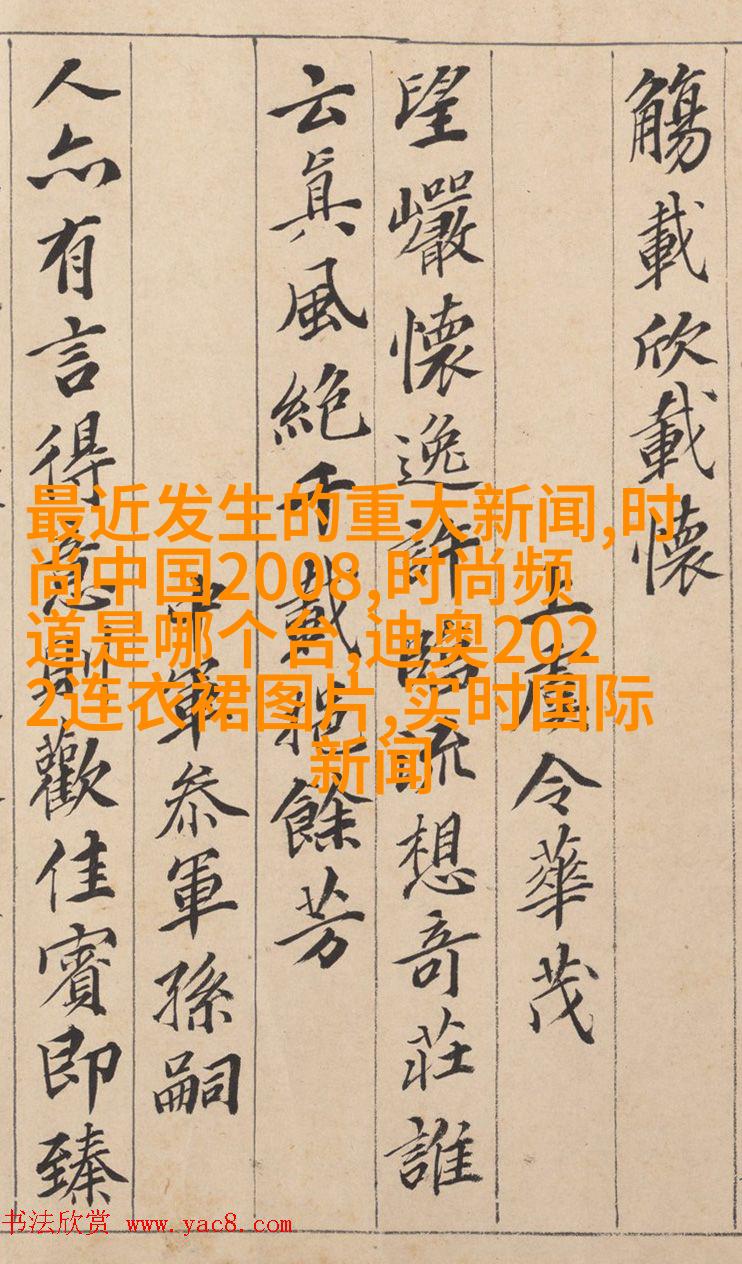 觴載欣載懷
上虞令華茂
望巖懷逸許臨流想奇莊誰
云眞風絶千載挹餘芳
中軍叅軍孫嗣
人亦有言得意則歡佳賓即臻
最近发生的重大新闻,时
尚中国2008,时尚频
道是哪个台,迪奥202
2连衣裙图片,实时国际
新闻
书法欣赏 www.yac8.com